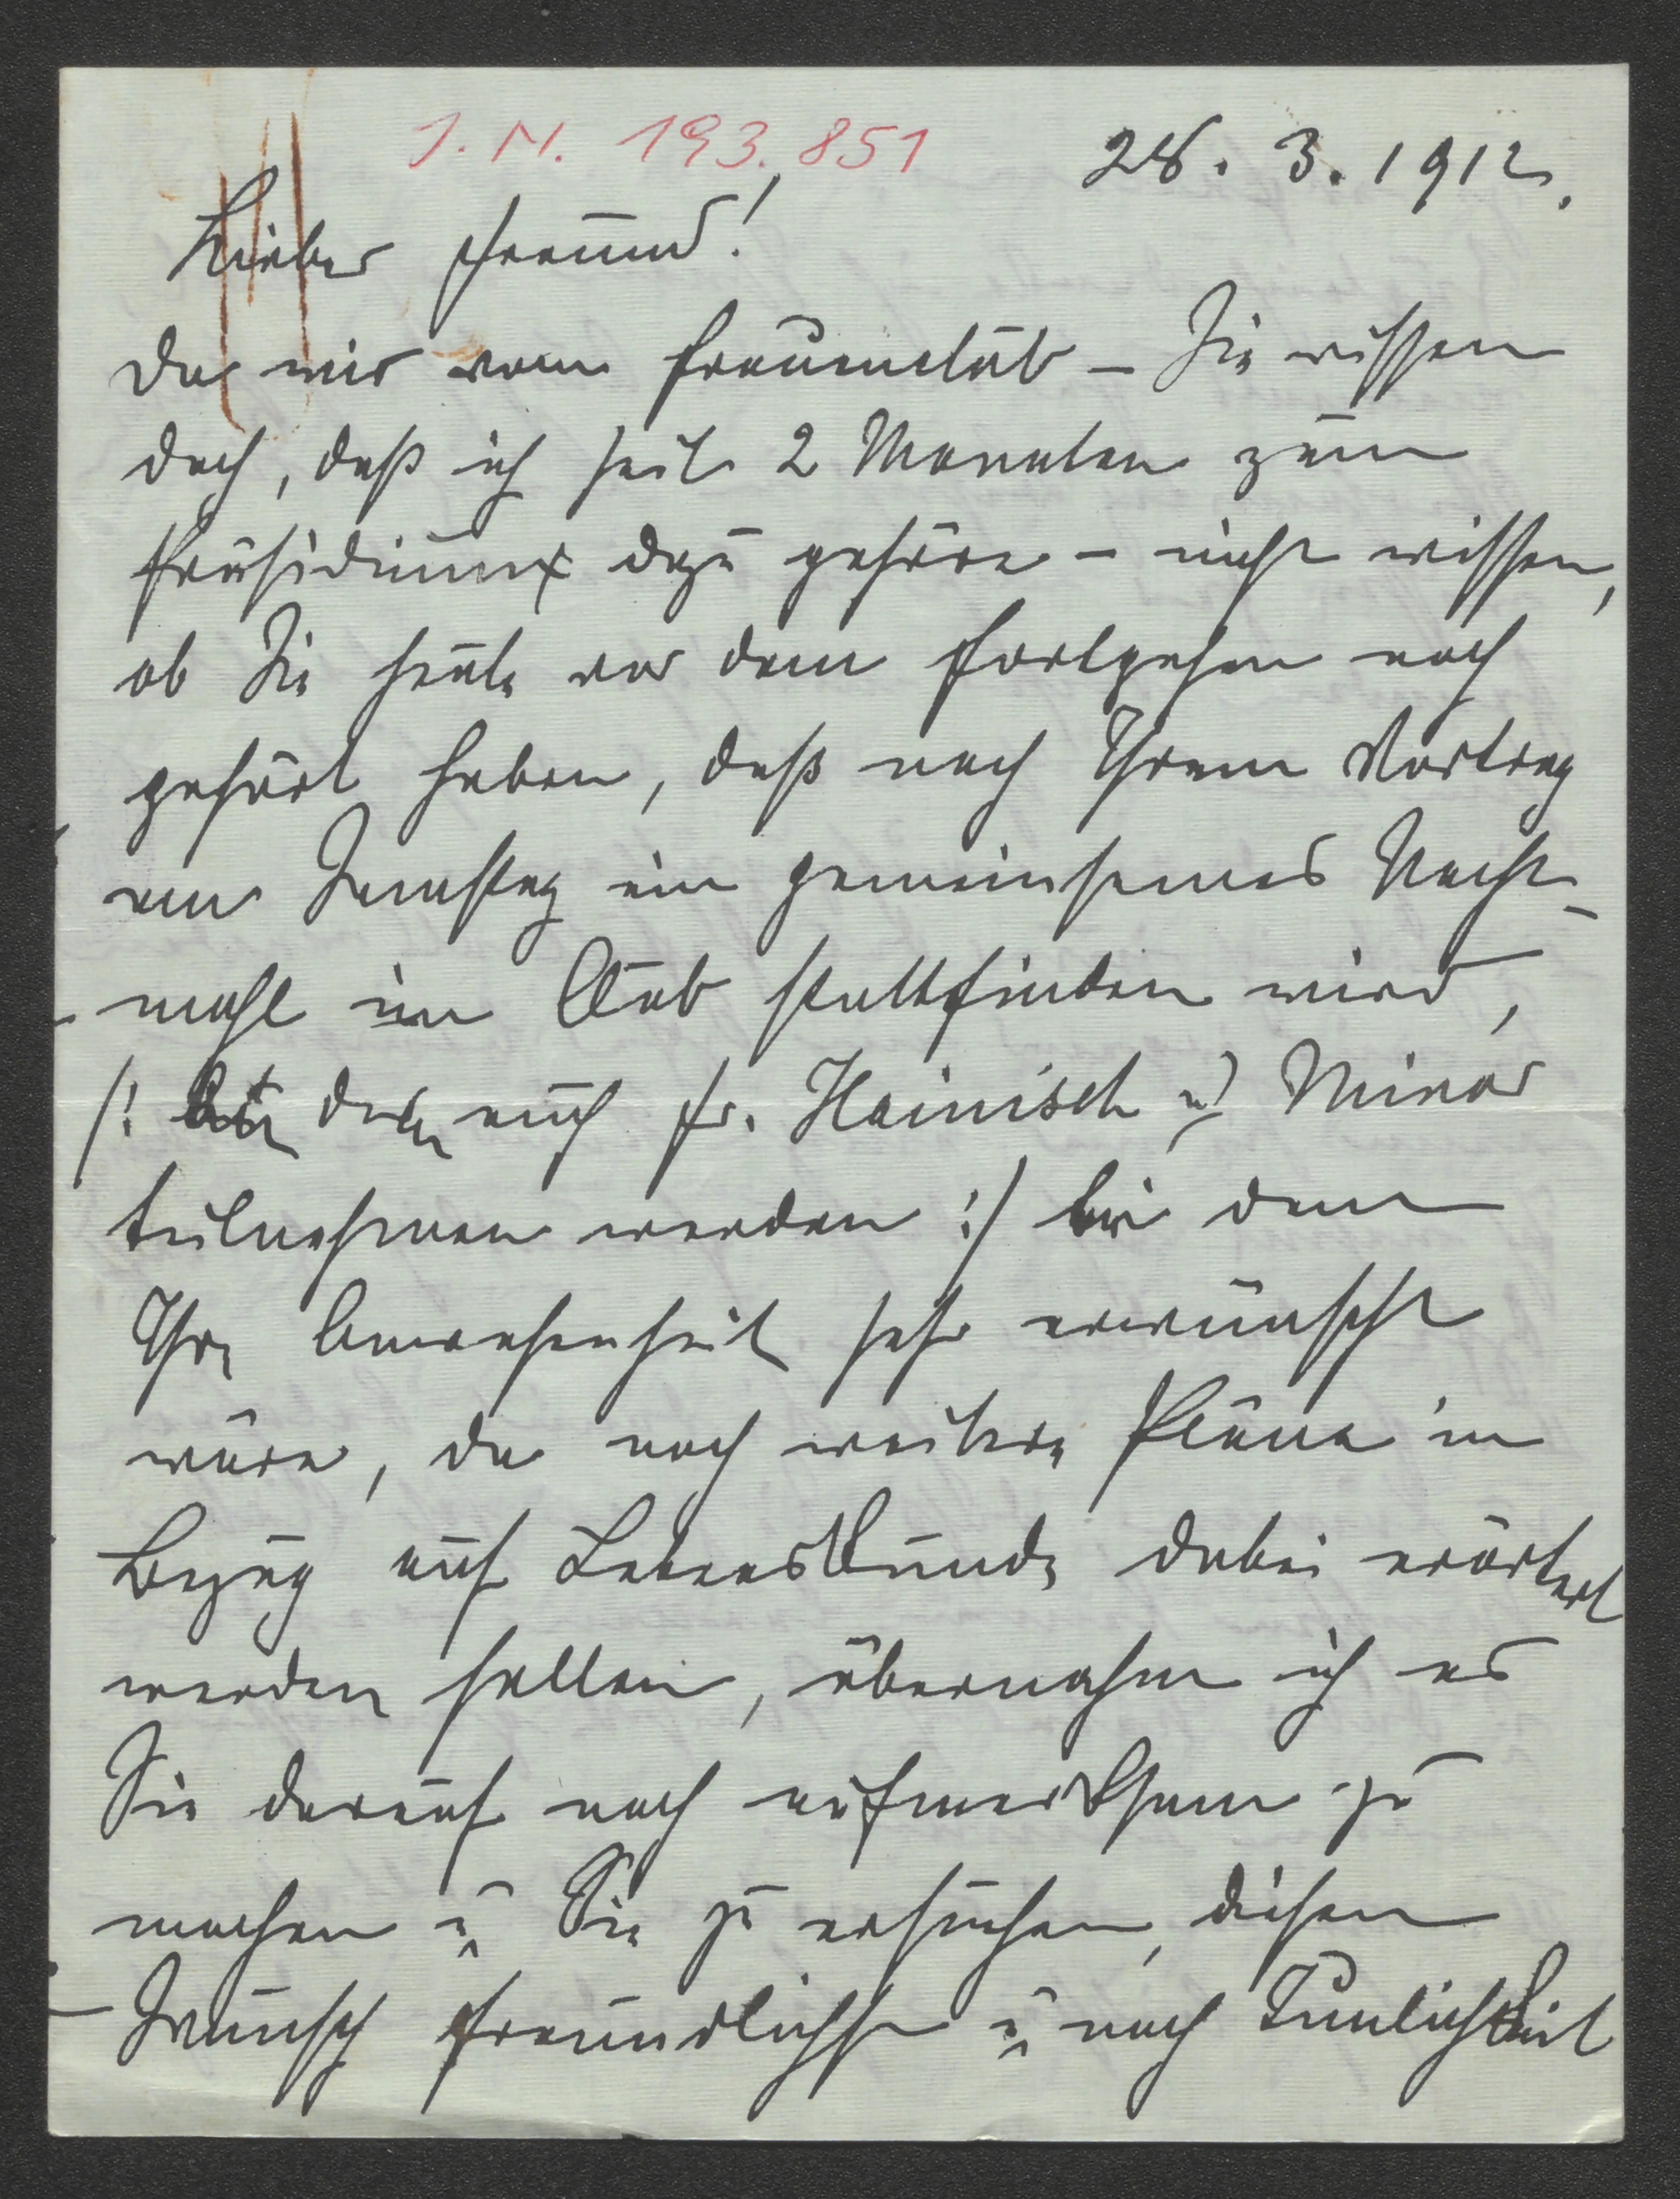 J. N. 193.851
28. 3. 1912.
Lieber Freund!
Da wir vom Frauenclub – Sie wissen
doch, daß ich seit 2 Monaten zum
Präsidium dazu gehöre – nicht wissen,
ob Sie heute vor dem Fortgehen noch
gehört haben, daß nach Ihrem Vortrag
am Samstag ein gemeinsames Nacht-
mahl im Club stattfinden wird,
/: an dem auch Fr. Hainisch u Minor
teilnehmen werden :/ bei dem
Ihre Anwesenheit sehr erwünscht
wäre, da noch weitere Pläne in
Bezug auf Lebenskunde dabei erörtert
werden sollen, übernahm ich es
Sie darauf noch aufmerksam zu
machen u Sie zu ersuchen, diesen
Wunsch freundlichst u nach Tunlichkeit